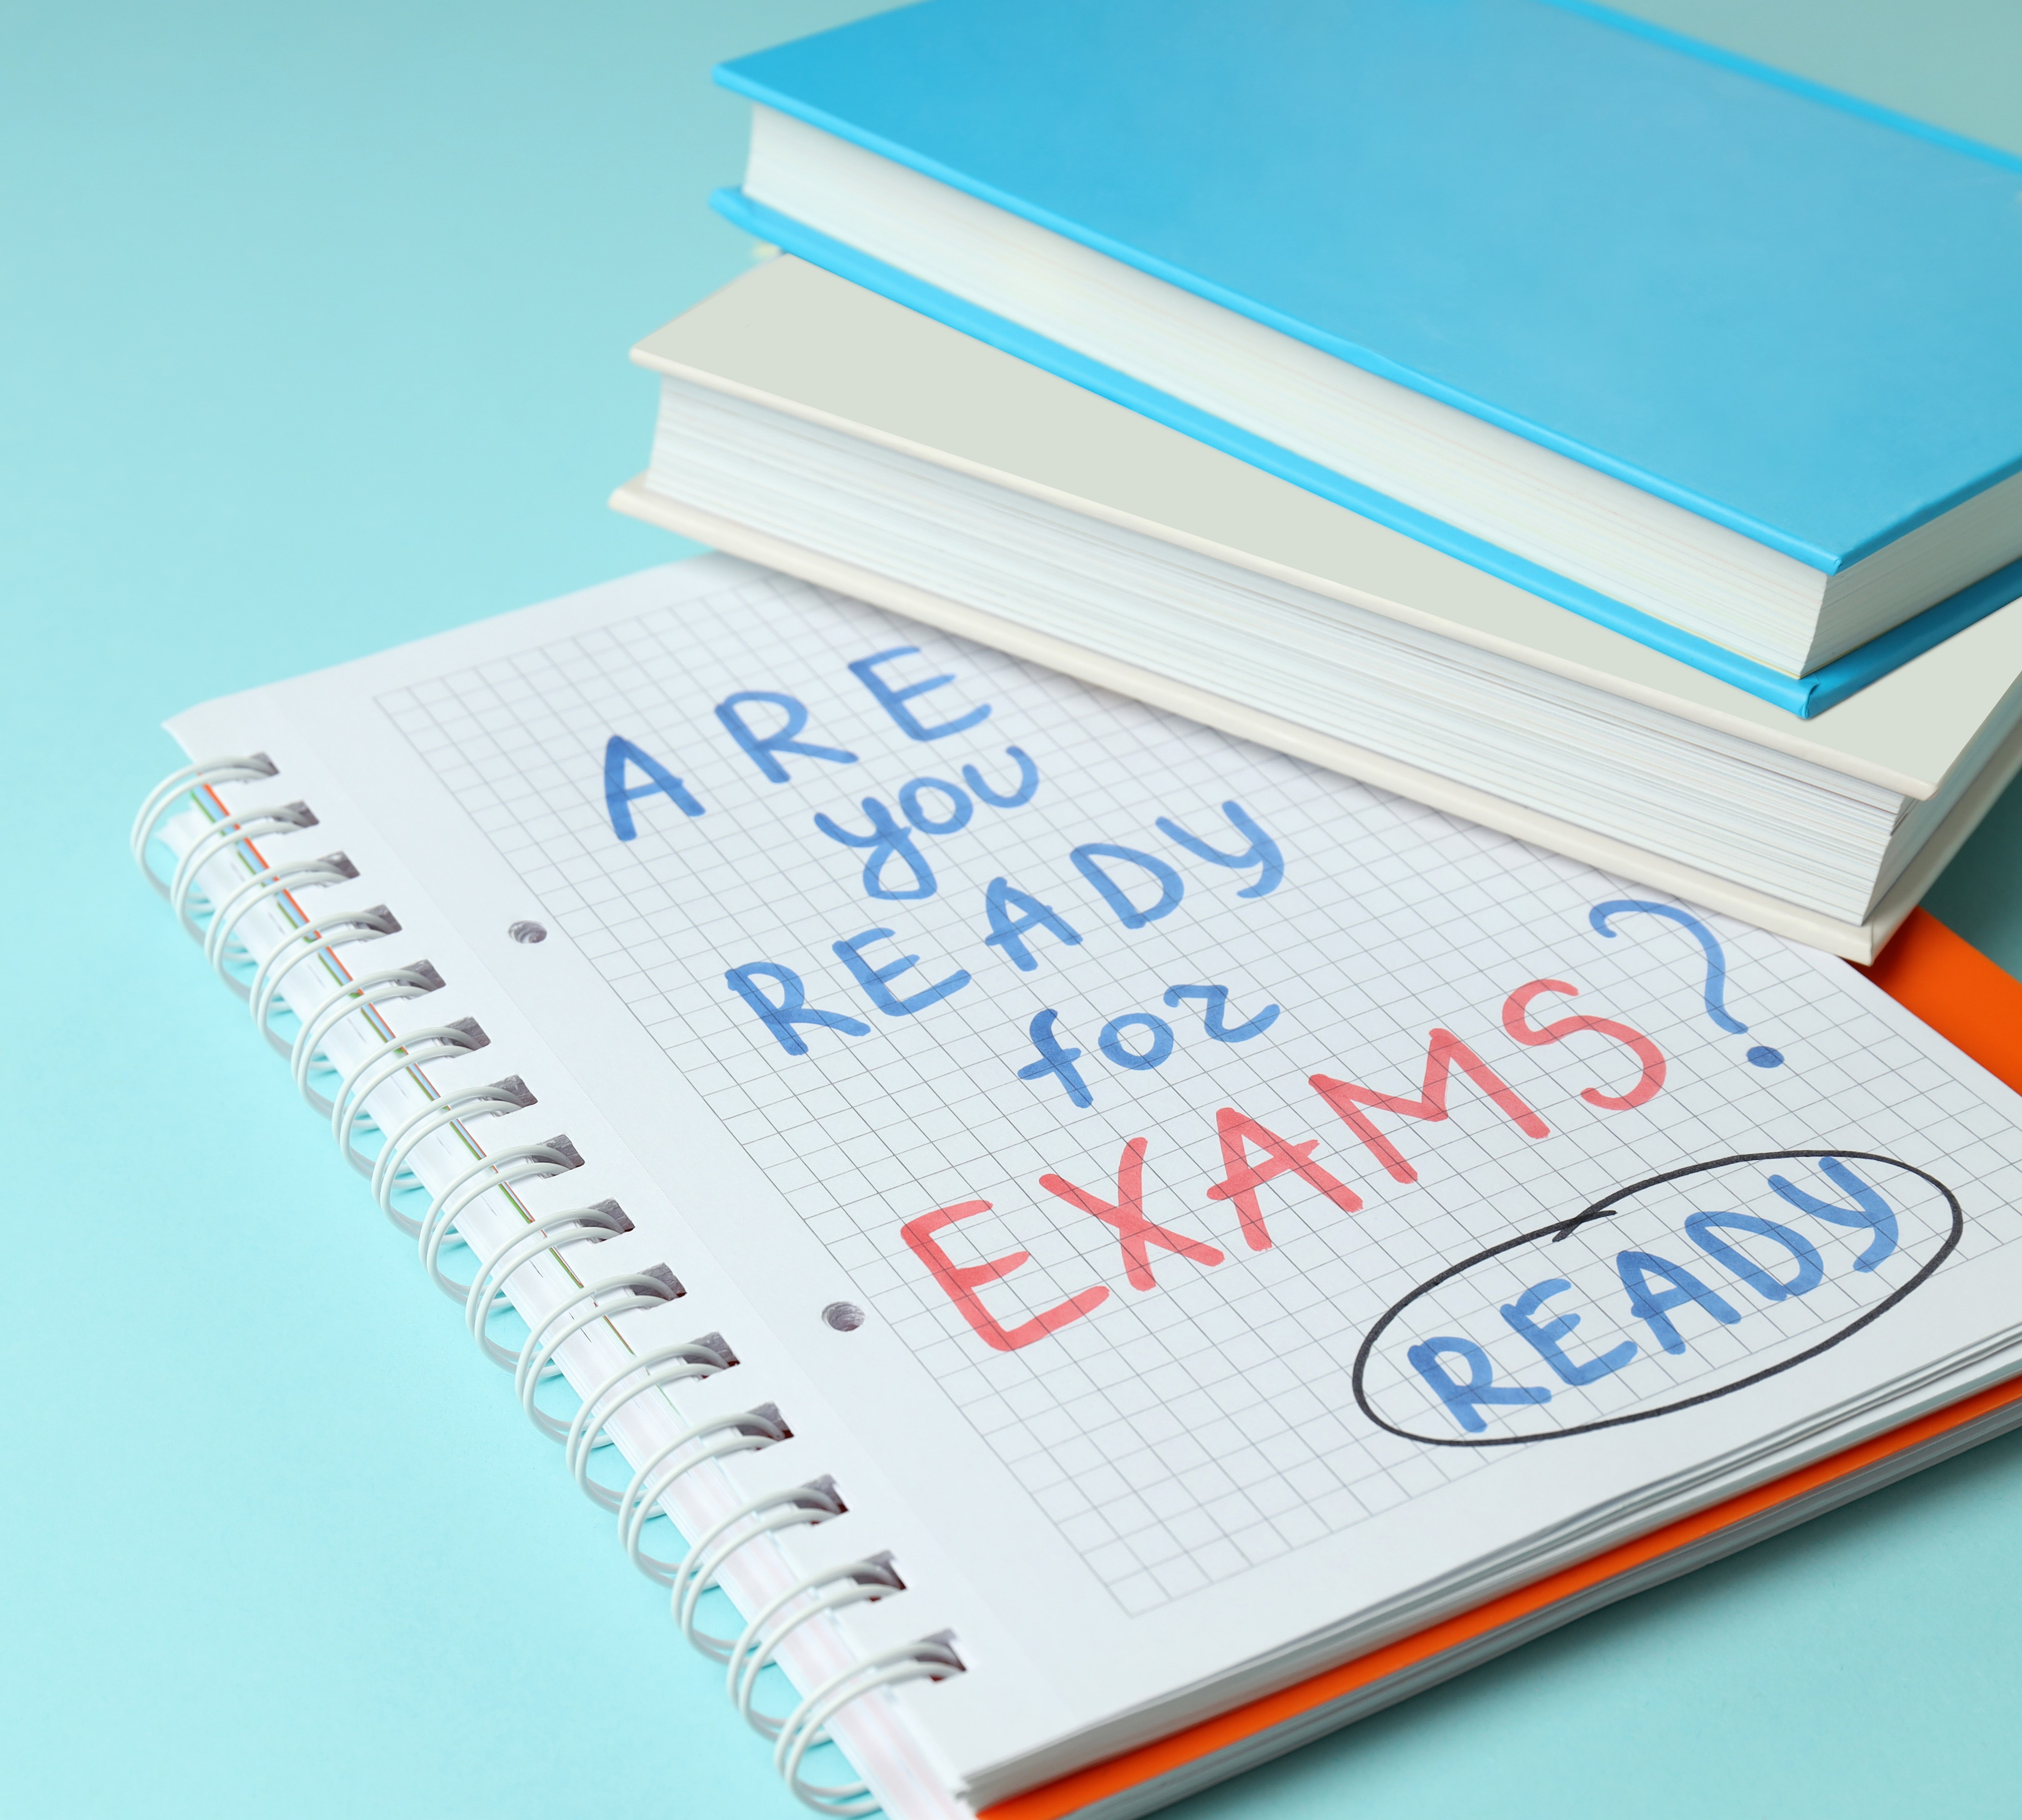 ARE
you
READY
for
EXAMS?
READY